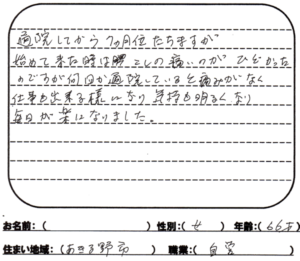 通院してから7ヶ月位たちますが
始めて来た時は腰、こしの痛いのが ひどかった
のですが何回か通院していると痛みがなく
仕事も出来る様になり 気持も明るくなり
毎日が楽になりました。
お名前：（　　　　　　　）性別：（ 女 ）年齢：（ 66才 ）
住まい地域：（あきる野市　）職業：（ 自営 ）